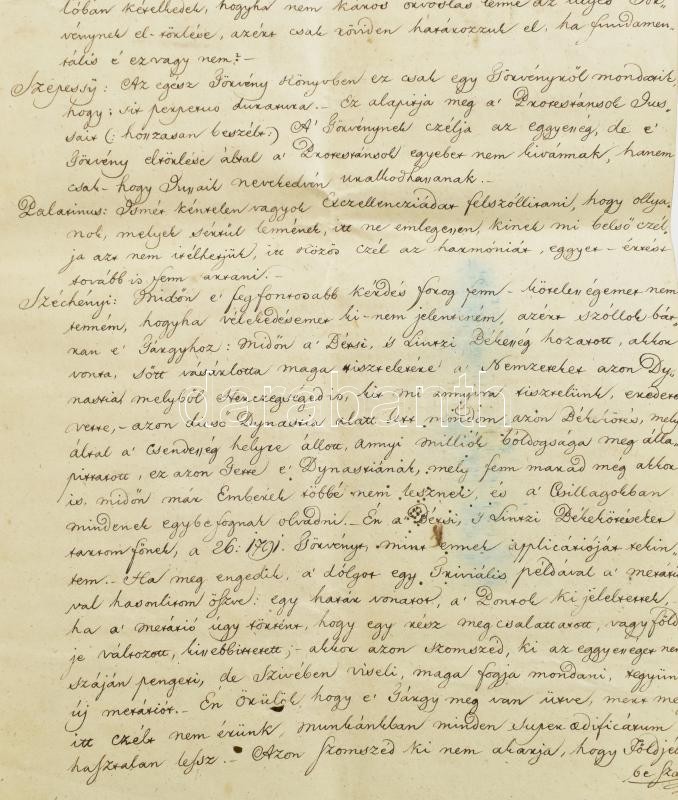 lóban kételkedek, hogyha nem káros orvoslás lenne az illyes Tör-
vénynek el-törlése, azért csak röviden határozzuk el, ha fundamen-
tális é ez vagy nem? –
Szepessÿ: Az egész Törvény Könyvben ez csak egy Törvényről mondatik,
hogy: sit perpetuo duratura. – Ez alapitja meg a' Protestánsok Jus-
sait (: hosszasan beszélt:) A' Törvénynek czélja az eggyesség, de e'
Törvény eltörlése által a' Protestánsok egyebet nem kivánnak, hanem
csak – hogy Jussaik nevekedvén uralkodhassanak. –
Palatinus: Ismét kéntelen vagyok Excellencziádat felszóllitani, hogy ollya-
nok, melyek sértők lennének, itt ne emlegessen, kinek mi belső czél-
ja azt nem itélhetjük, itt közös czél az harmóniát, eggyet-értést
tovább is fenn tartani. –
Széchényi: Midőn e' legfontosabb kérdés forog fenn – kötelességemet nem
tenném, hogyha vélekedésemet ki-nem jelenteném, azért szóllok bát-
ran e' Tárgyhoz: Midőn a' Bétsi, 's Lintzi Békesség hozatott, akkor
vonta, sőtt vásárlotta maga tiszteletére a' Nemzeteket azon Dy-
nastia melyből Herczegséged is, kit mi annyira tisztelünk, eredetet
vette, – azon dütső Dynastia alatt lett mondom azon Békekötés, mely
által a' Csendesség helyre állott, annyi milliók boldogsága meg álla-
pittatott, ez azon Tette e' Dynastiának, mely fenn marad még akkor
is, midőn már Emberek többé nem lesznek, és a' Csillagokban
mindenek egybe fognak olvadni. – Én a' Bétsi, 's Lintzi Békekötéseket
tartom főnek, a 26: 1791. Törvényt, mint ennek applicátióját tekin-
tem. – Ha meg engedik, a' dolgot egy Triviális példával a' metáti-
val hasonlitom össze: egy határ vonatott, a' Pontok ki jeleltettek, –
ha a' metátió úgy történt, hogy egy rész megcsalattatott, vagy föld-
je változott, kissebbittetett; – akkor azon szomszéd, ki az eggyességet nem
száján pengeti, de Szivében viseli, maga fogja mondani, tegyünk
új metátiót. – Én Örülök hogy e' Tárgy meg van ütve, mert míg
itt czélt nem érünk, munkánkban minden super ædificátum
hasztalan lessz. – Azon Szomszéd ki nem akarja, hogy Földjé-
be
darabanth